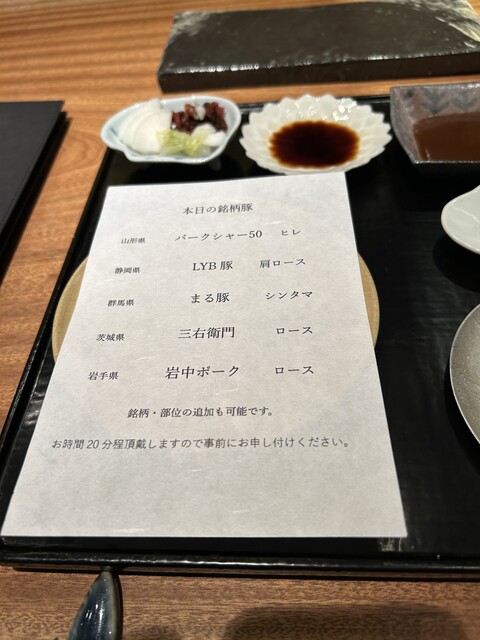 本日の銘柄豚
山形県 バークシャー50 ヒレ
静岡県 LYB豚 肩ロース
群馬県 まる豚 シンタマ
茨城県 三右衛門 ロース
岩手県 岩中ポーク ロース
銘柄・部位の追加も可能です。
お時間20分程頂戴しますので事前にお申し付けください。